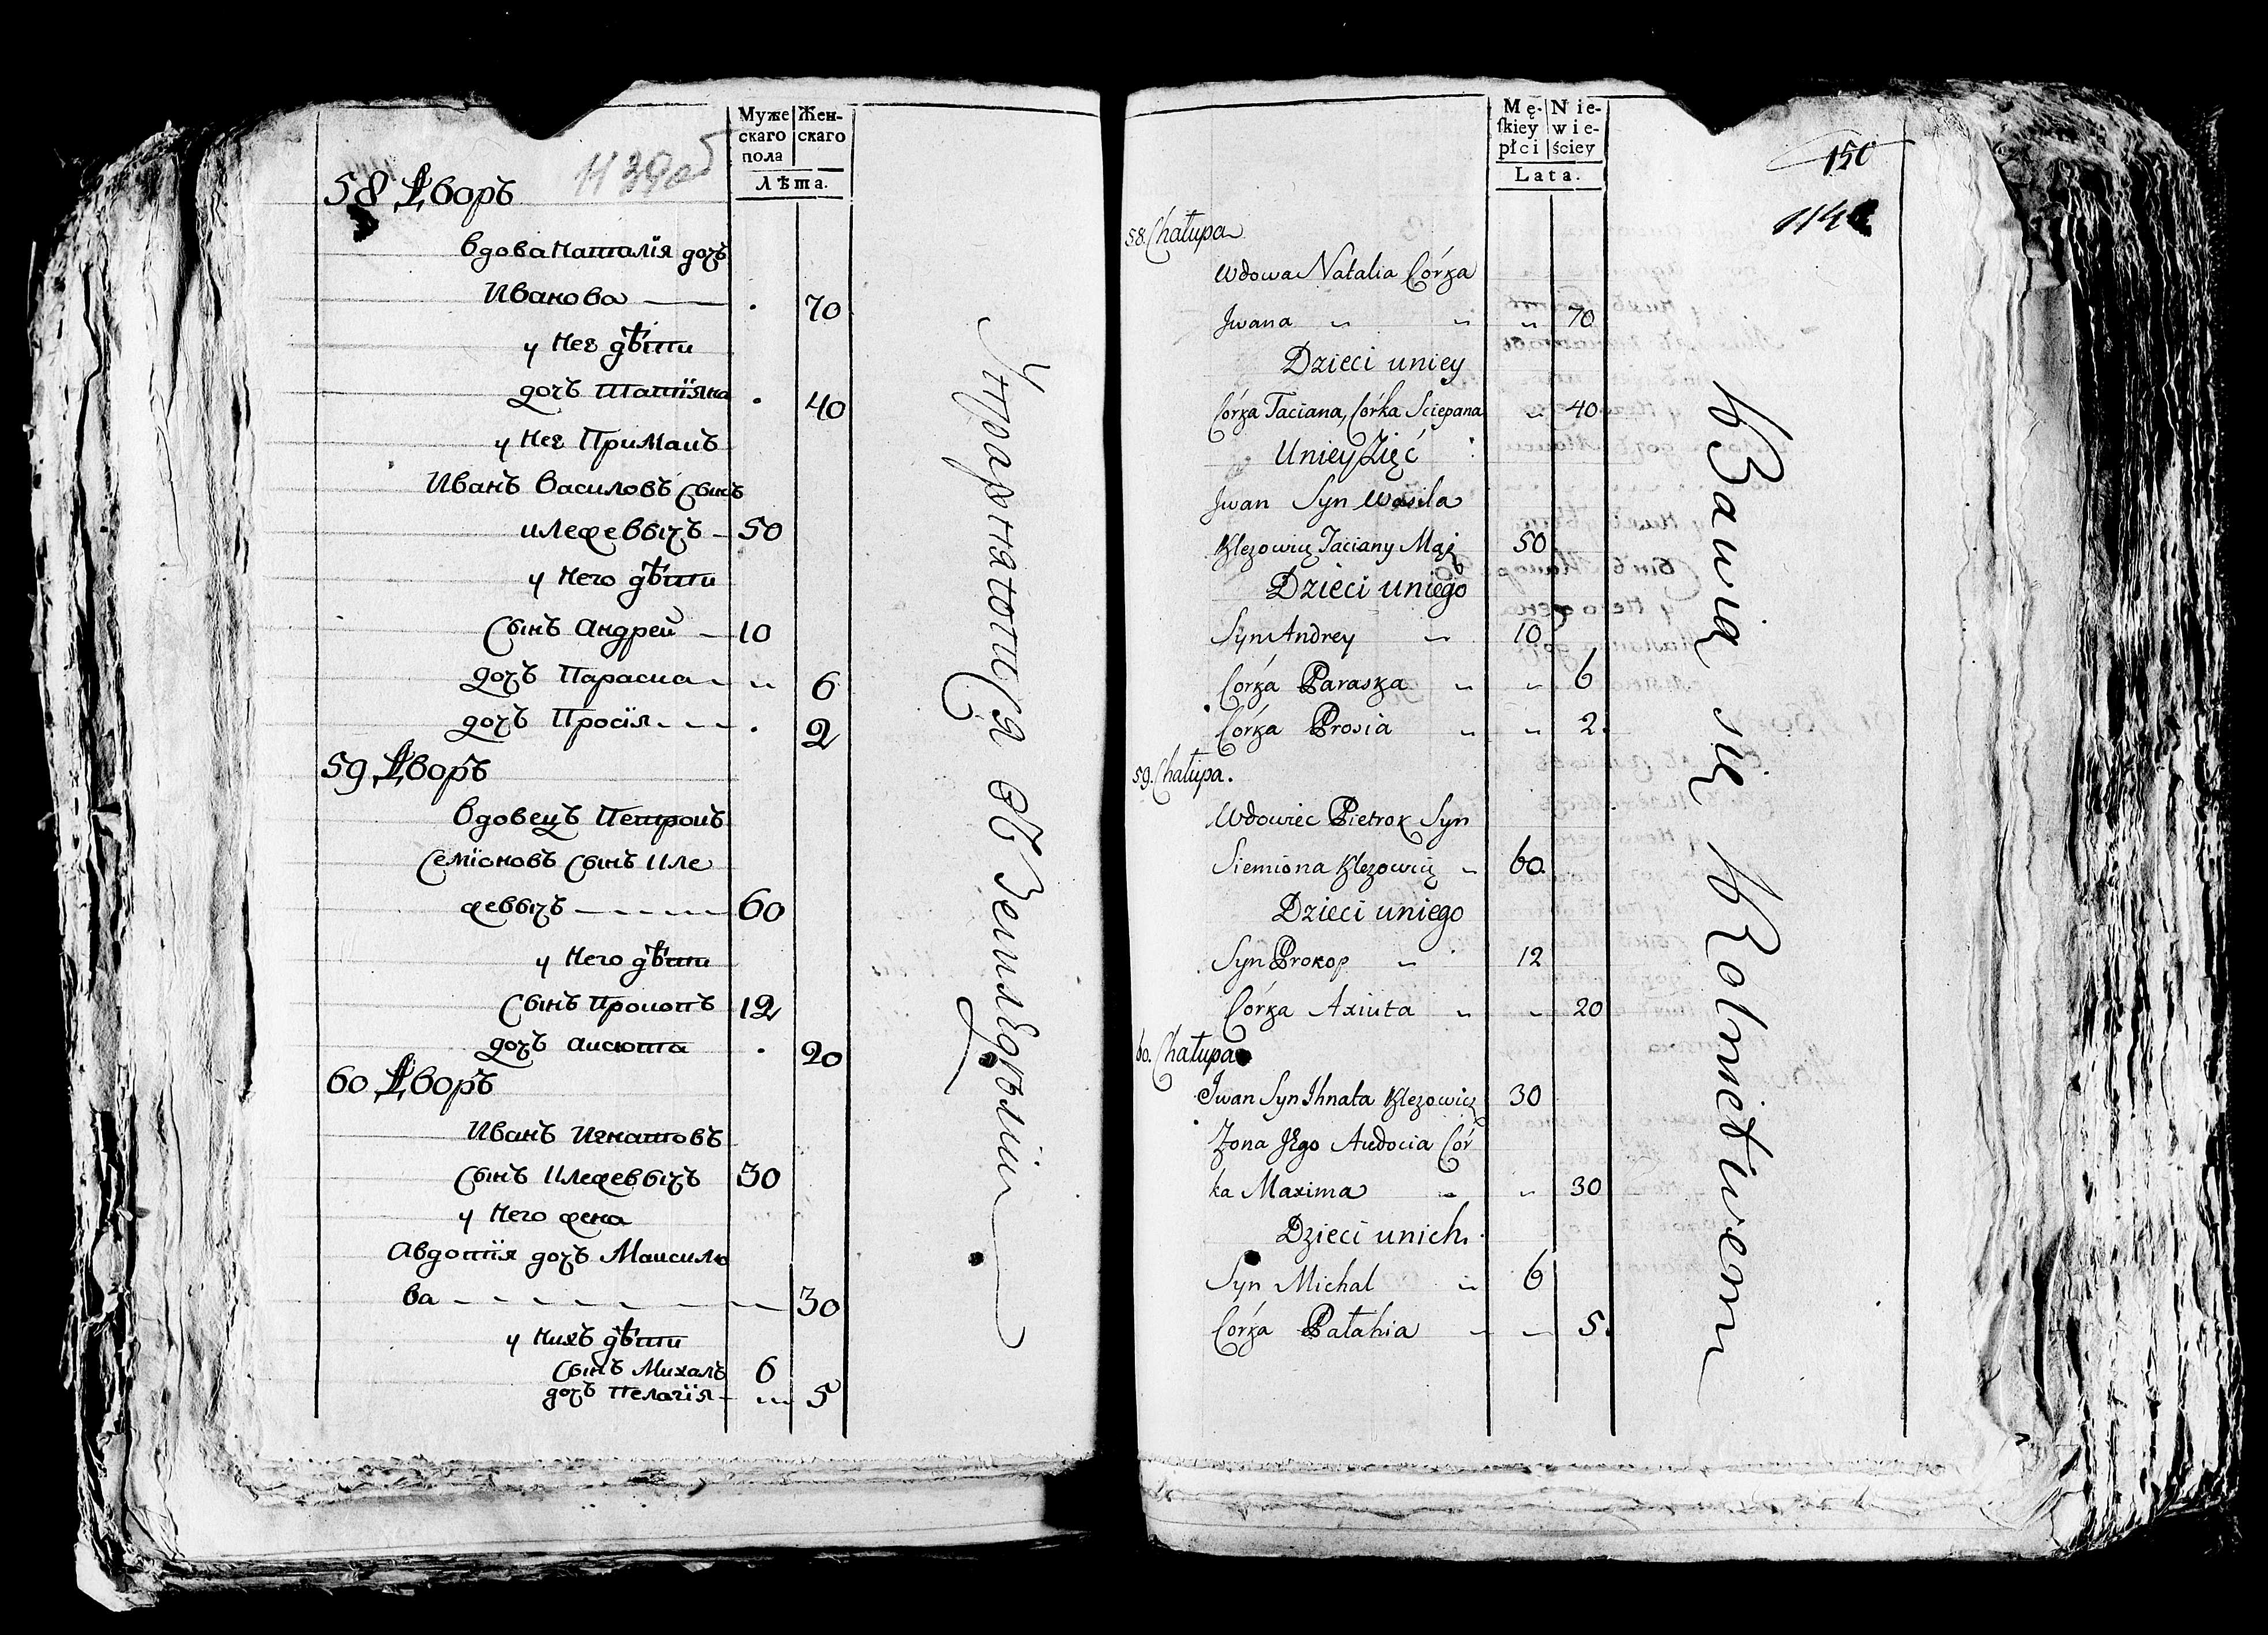 Муже
скаго
пола
Жен-
скаго
Лѣта.
1139об
58 Дворъ
Вдова Наталїя дочь
Иванова — . 70
у нее дѣти
дочь Татїяна . 40
у нее Примакъ
Иванъ Василовъ сынъ
Клежевычъ — 50
у него дѣти
Сынъ Андрей — 10
дочь Параска — „ 6
дочь Просїя - - - . 2
59 Дворъ
Вдовецъ Петрокъ
Семїоновъ Сынъ Кле
жевычъ - - - - 60
у него дѣти
Сынъ Прокопъ 12
дочь Аксюта . 20
60 Дворъ
Иванъ Игнатовъ
Сынъ Клежевычъ 30
у него жена
Авдотїя дочь Максимо
ва - - - - - - 30
у нихъ дѣти
Сынъ Михалъ 6
дочь Пелагїя - „ 5
Упражнятотся въ Земледѣлїи
Mę-
skiey
płci
Nie-
wie-
ściey
Lata.
150
114
58. Chałupa
Wdowa Natalia Córka
Jwana „ „ „ 70
Dzieci uniey
Córka Taciana, Córka Sciepana „ 40
Uniey Zięć
Jwan Syn Wasila
Klezowicz Taciany Mąż 50
Dzieci uniego
Syn Andrey „ 10
Córka Paraska „ „ 6
Córka Prosia „ „ 2.
59. Chałupa.
Wdowiec Pietrok Syn
Siemiona Klezowicz „ 60.
Dzieci uniego
Syn Prokop „ 12
Córka Axiuta „ „ 20
60. Chałupa
Jwan Syn Ihnata Klezowicz 30
Żona Jego Audocia Cór
ka Maxima „ „ 30
Dzieci unich.
Syn Michał „ 6
Córka Pałahia „ „ 5.
Bawią się Rolnictwem